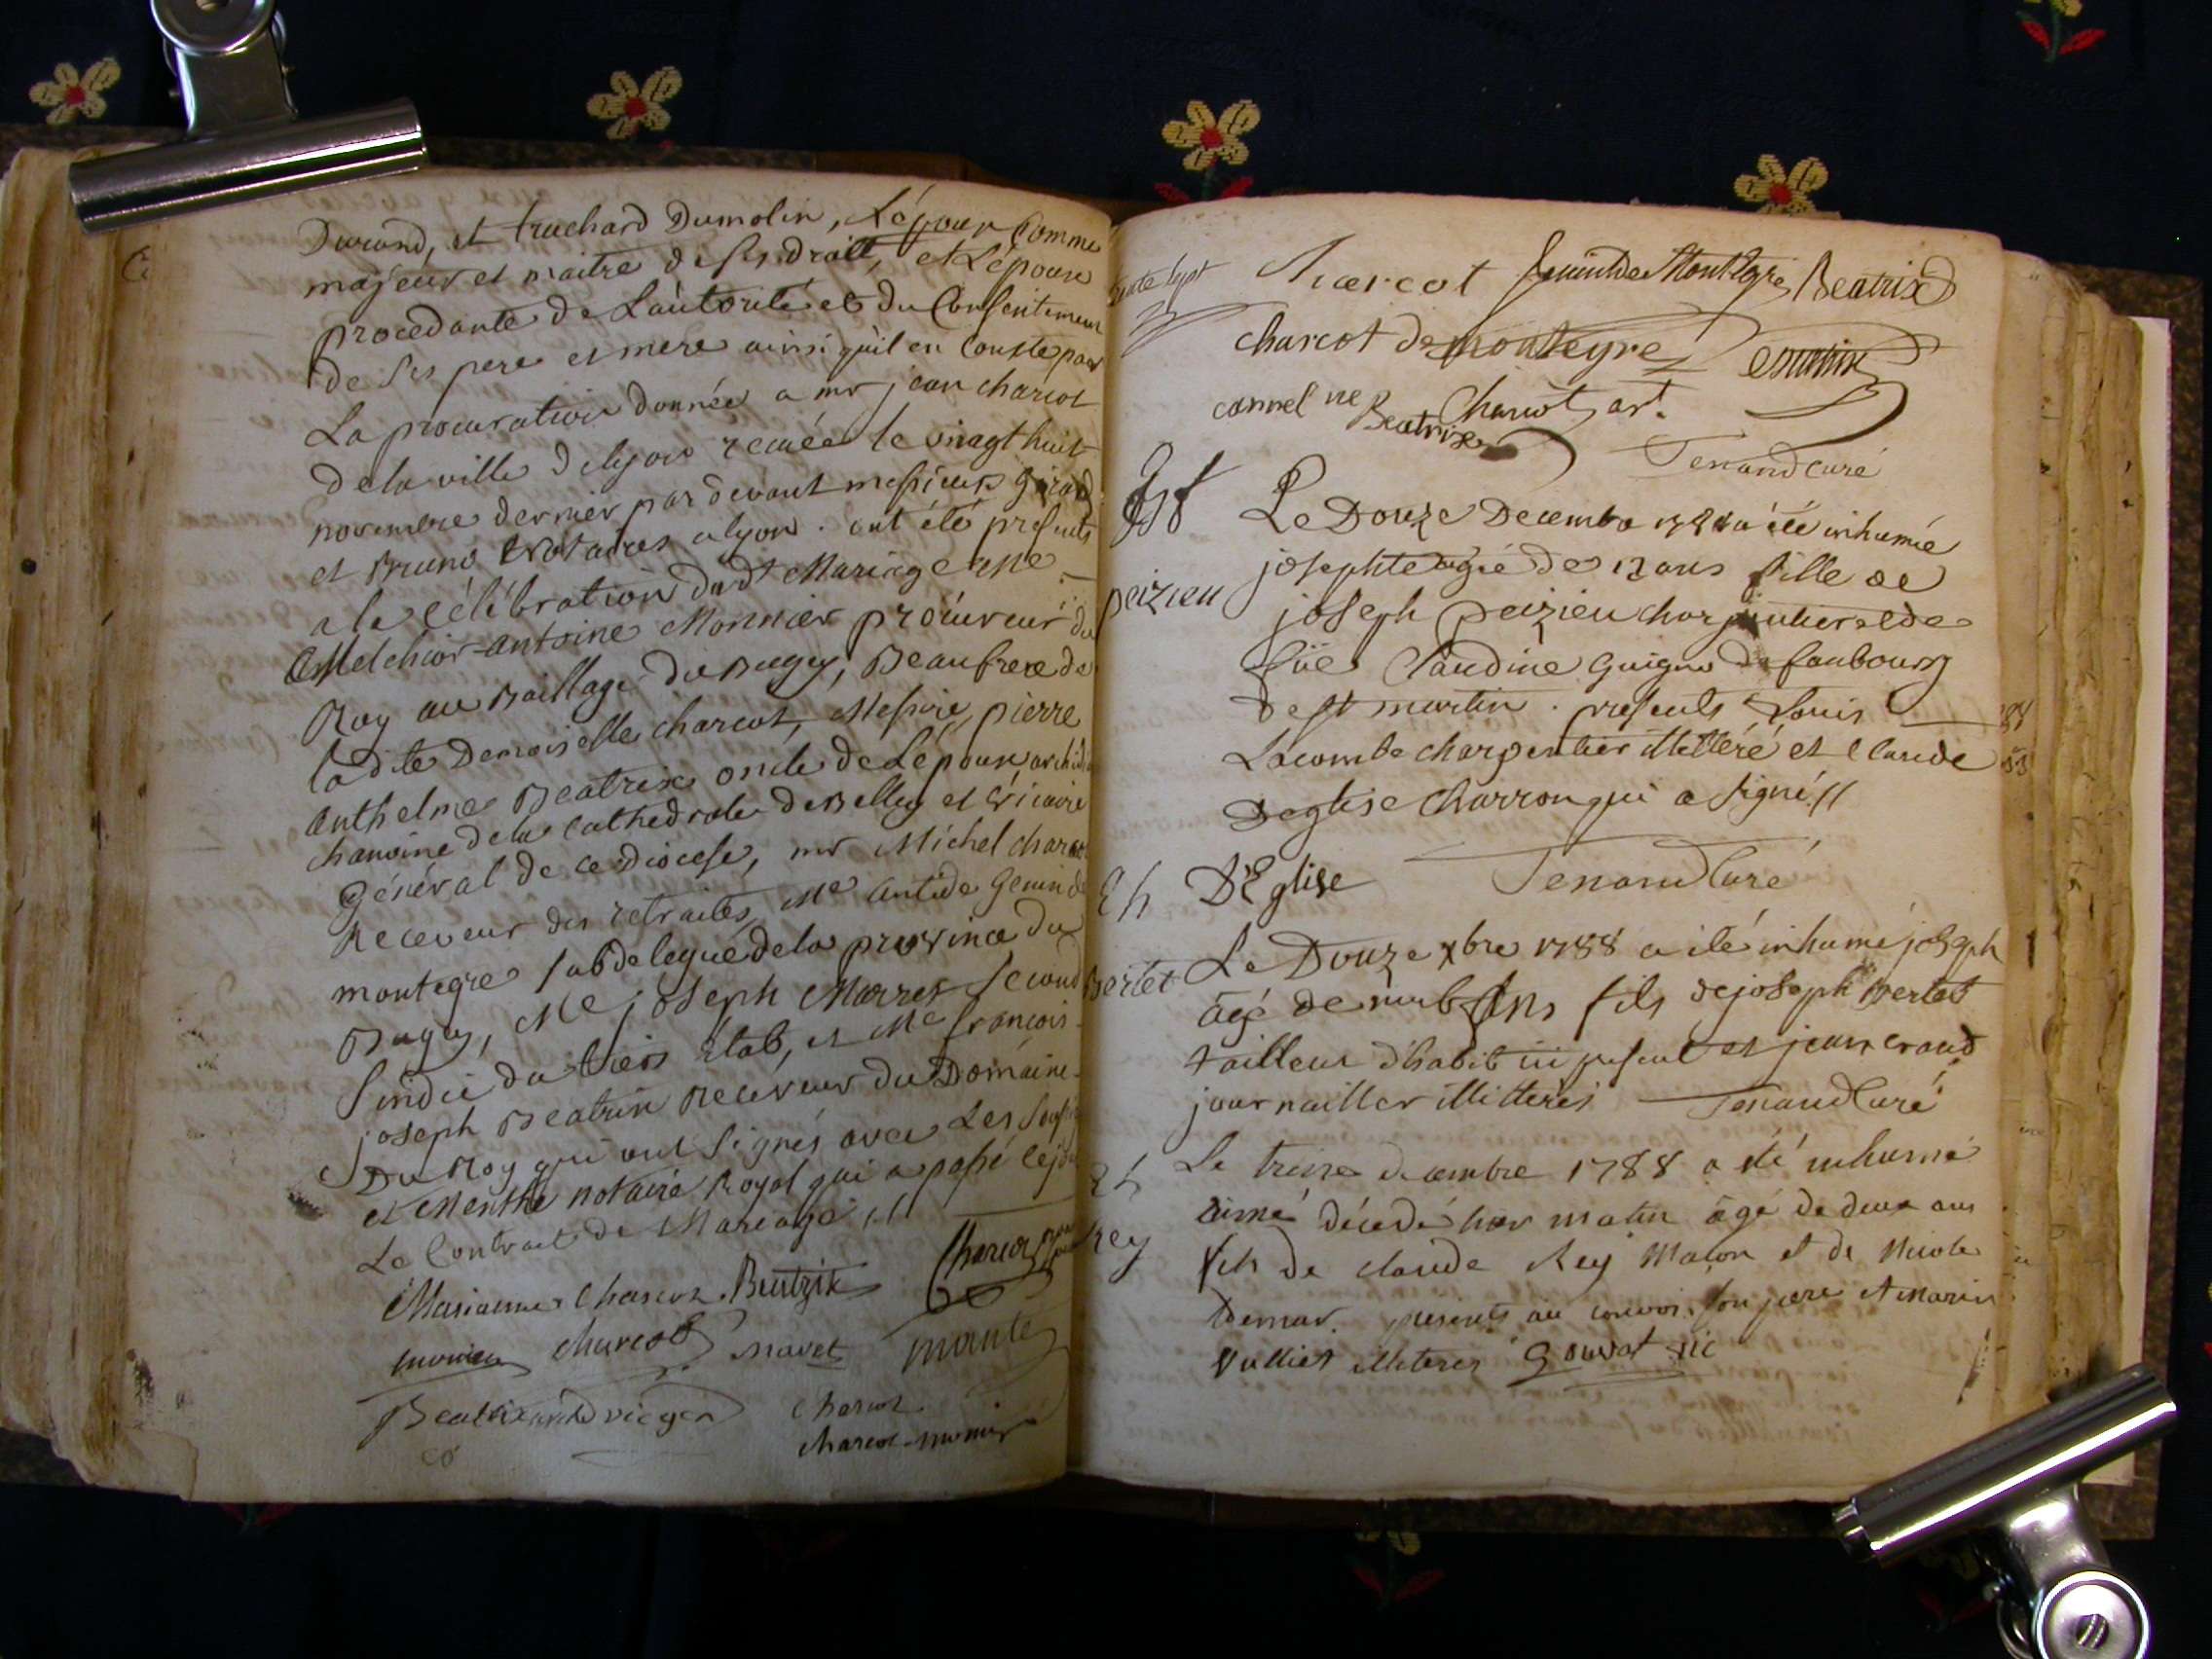 Durand, et truchard Dumolin, L'époux Comme
majeur et maitre de ses droits, et L'épouse
procedante de L'autorité et du Consentement
de Ses pere et mere ainsi qu'il en Conste par
La procuration donnée a mr jean charcot
de la ville de lyon recuée le vingt huit
novembre dernier par devant messieurs
et Bruno Notaires a lyon . ont été presents
a la célébration dudt Mariage Me
Melchior antoine Monnier procureur du
Roy au Baillage du Bugey, Beaufrere de
ladite Demoiselle charcot, Messire pierre
anthelme Beatrix oncle de L'époux
chanoine de la Cathedrale de Belley et Vicaire
Général de ce Diocese, mr Michel charcot
Receveur des retraites, Me antide Genin de
montegre subdelegué de la province du
Bugey, Me joseph Marret second
Sindic du tiers Etat, et Me françois
joseph Beatrix Receveur du Domaine
Du Roy qui ont Signés avec Les
et Menthe notaire Royal qui a passé
Le Contrat de Mariage //
Marianne Charcot Beatrix Charcot
monier charcot mavet mante
Beatrix vic gen charcot
charcot monier
charcot Genin de Montegre Beatrix
charcot de montegre
charcot ar.
Beatrix
Tenand curé
Le Douze Decembre 1788 a été inhumée
josephte agée de 12 ans fille de
peizieu
joseph peizieu charpentier et de
füe Claudine guigue du faubourg
de st martin . presents Louis
Lacombe charpentier illitéré et Claude
Deglise Charron qui a signé //
D'Eglise Tenand Curé
Le Douze xbre 1788 a été inhumé joseph
Bertet
agé de neuf ans fils de joseph Bertet
tailleur d'habit ici present et jean craud
journailler illitterés Tenand Curé
Le treize decembre 1788 a été inhumé
aimé décedé hier matin agé de deux ans
Rey
fils de claude Rey Maçon et de Nicole
Demar. presents au convoi son pere et marin
Vulliet illiteres Gouvat vic